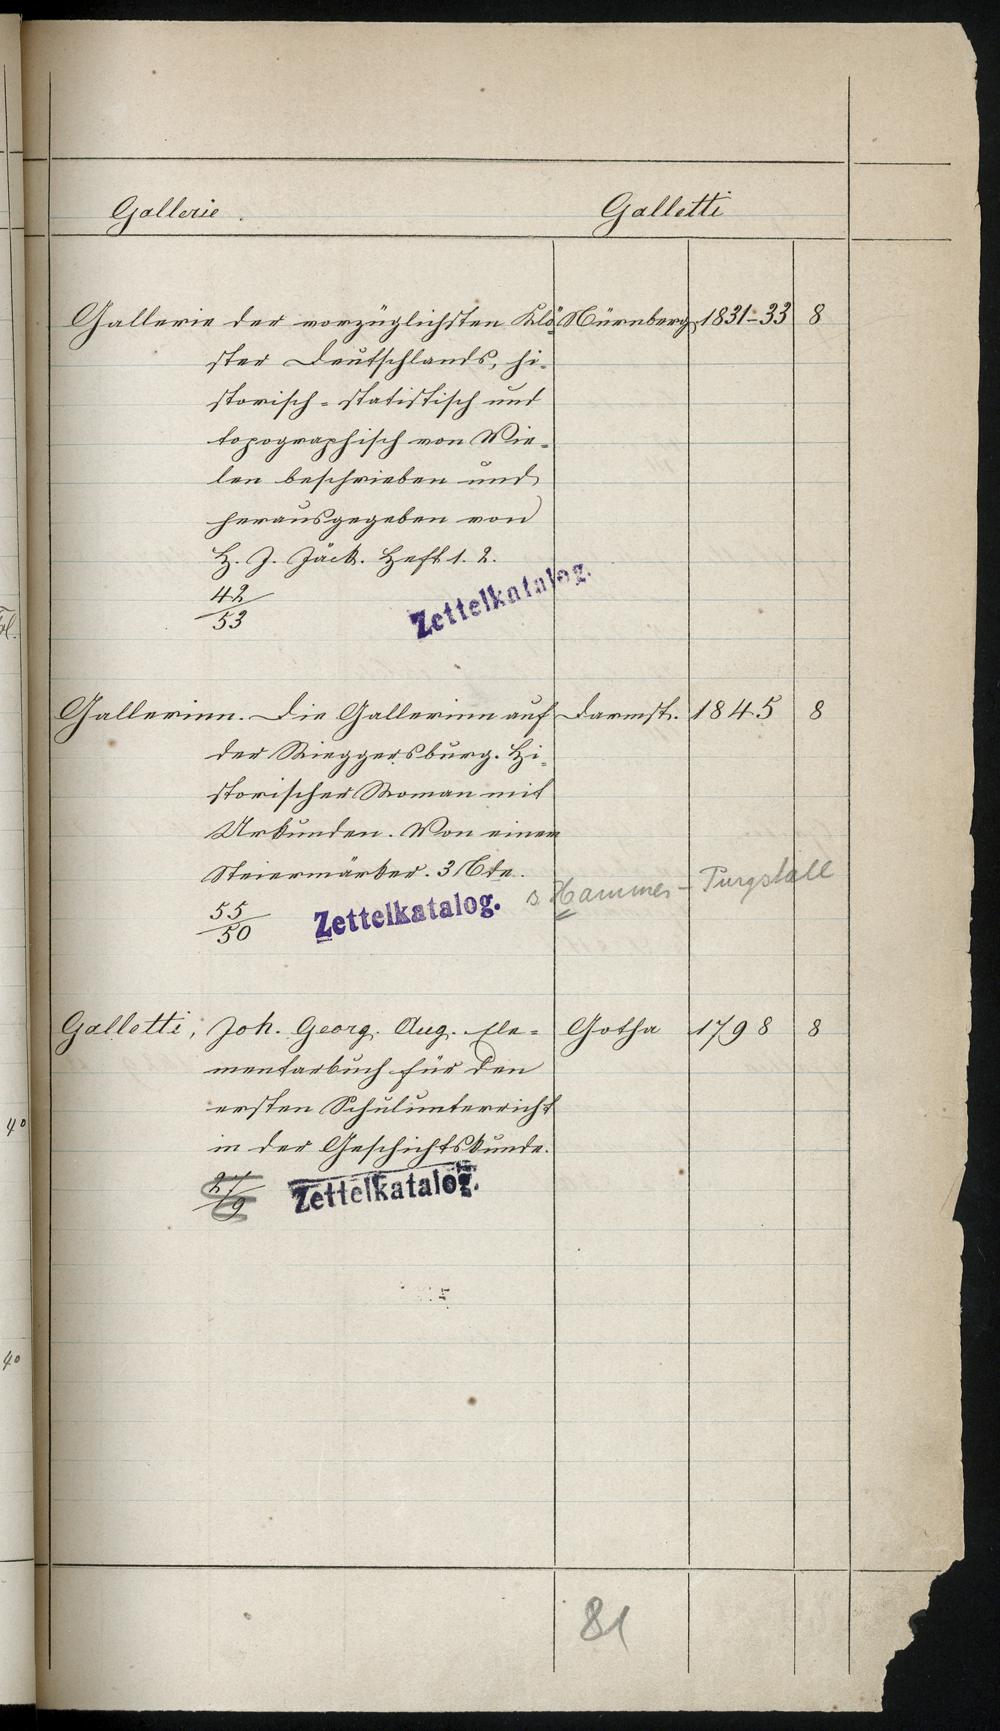 Gallerie. Galletti
Gallerie der vorzüglichsten Klö= Nürnberg 1831-33 8
ster Deutschlands, hi=
storisch=statistisch und
topographisch von Vie=
len beschrieben und
herausgegeben von
H. J. Jäck. Heft 1. 2.
42/53
Zettelkatalog.
Gallerinn. Die Gallerinn auf Darmst. 1845 8
der Rieggersburg. Hi=
storischer Roman mit
Urkunden. Von einem
Steiermärker. 3 Bde.
s Hammer-Purgstall
55/50
Zettelkatalog.
Galletti, Joh. Georg. Aug. Ele= Gotha 1798 8
mentarbuch für den
ersten Schulunterricht
in der Geschichtskunde.
27/9
Zettelkatalog.
40
40
81